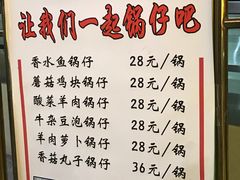 让我们一起锅仔吧
香水鱼锅仔 28元/锅
蘑菇鸡块锅仔 28元/锅
酸菜羊肉锅仔 28元/锅
牛杂豆泡锅仔 28元/锅
羊肉萝卜锅仔 28元/锅
香菇丸子锅仔 36元/锅